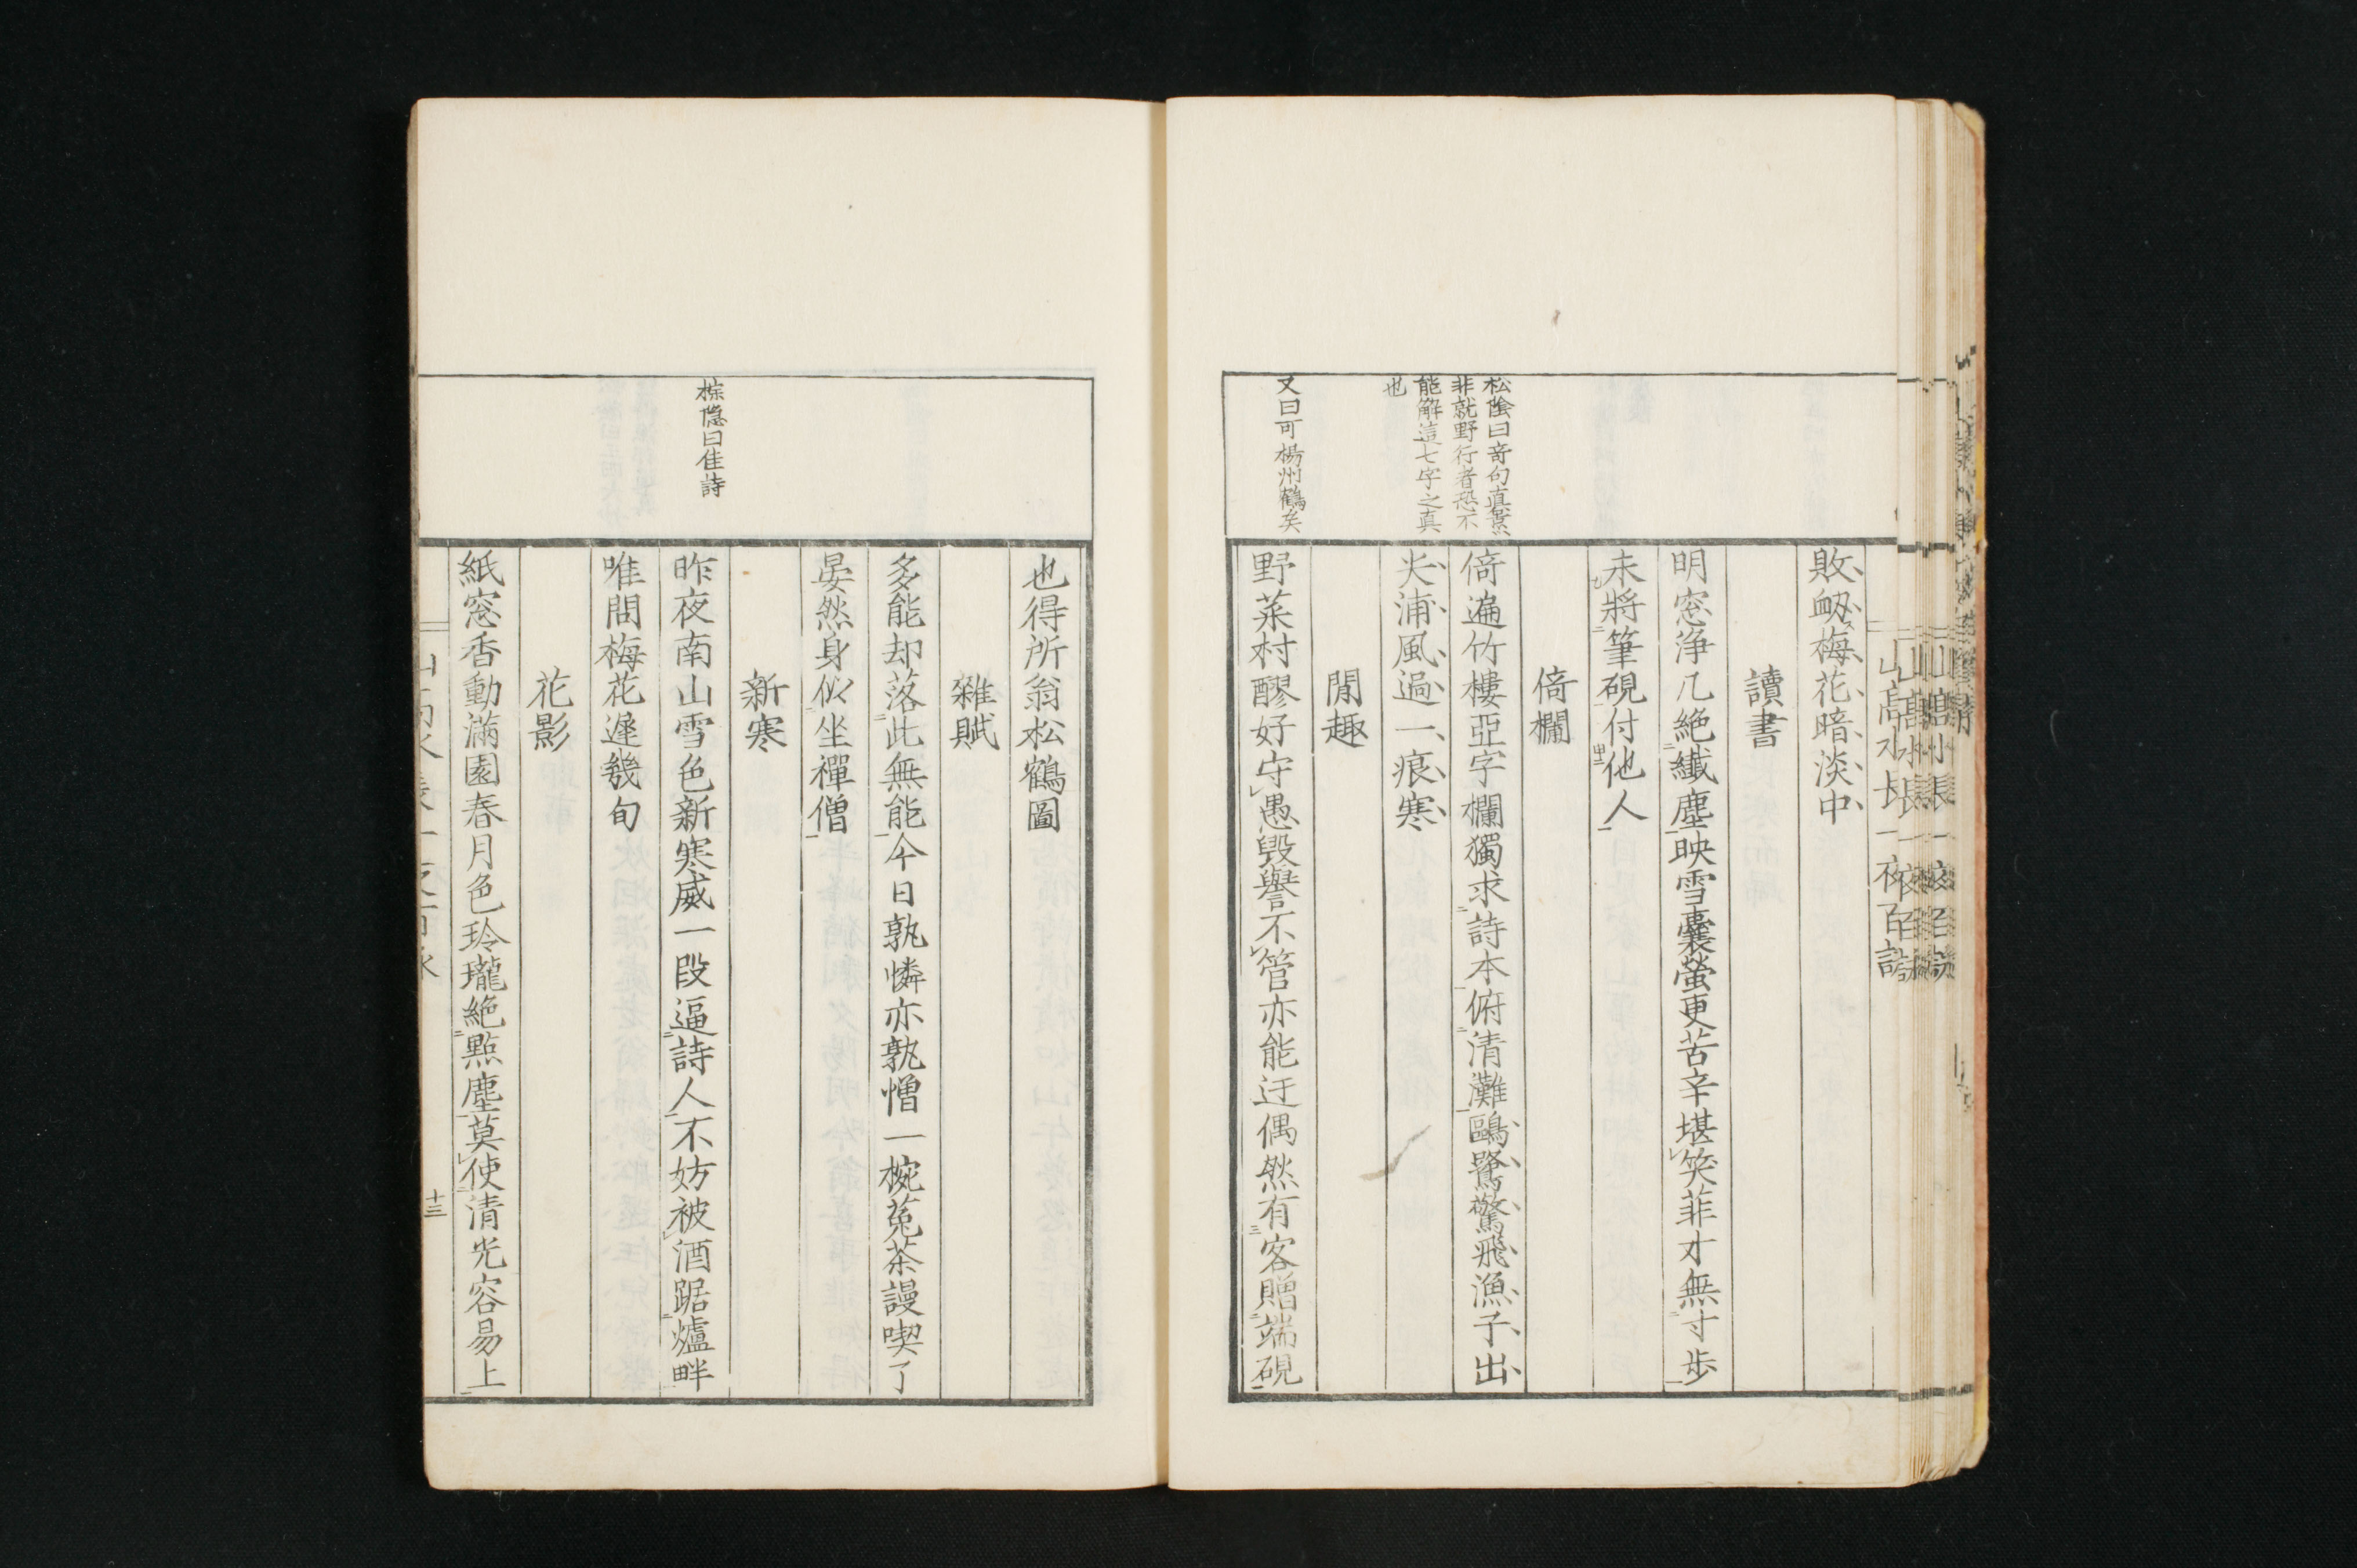 敗衂梅花暗淡中
讀書
明窓浄几絶纖塵映雪囊螢更苦辛堪笑菲才無寸歩
未將筆硯付他人
倚欄
松陰曰奇句真景
非就野行者恐不
能解這七字之真
也
倚遍竹樓亞字欄獨求詩本俯清灘鷗鷺驚飛漁子出
尖浦風過一痕寒
閒趣
又曰可楊州鶴矣
野菜村醪好守愚毀譽不管亦能迂偶然有客贈端硯
也得所翁松鶴圖
雜賦
多能却落此無能今日孰憐亦孰憎一椀菟茶謾喫了
晏然身似坐禪僧
新寒
棕隱曰佳詩
昨夜南山雪色新寒威一段逼詩人不妨被酒踞爐畔
唯問梅花遲幾旬
花影
紙窓香動滿園春月色玲瓏絶點塵莫使清光容易上
十三